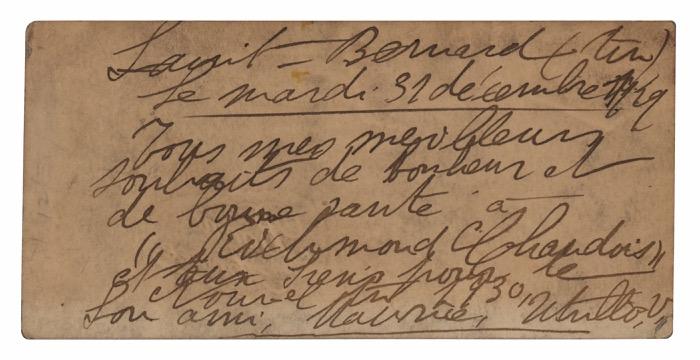 Saint-Bernard (Ain)
Le mardi 31 décembre 1929
Tous mes meilleurs
souhaits de bonheur et
de bonne santé à
"Richmond Chaudois"
et aux siens pour le
nouvel An "1930",
Son ami, Maurice, Utrillo, V,